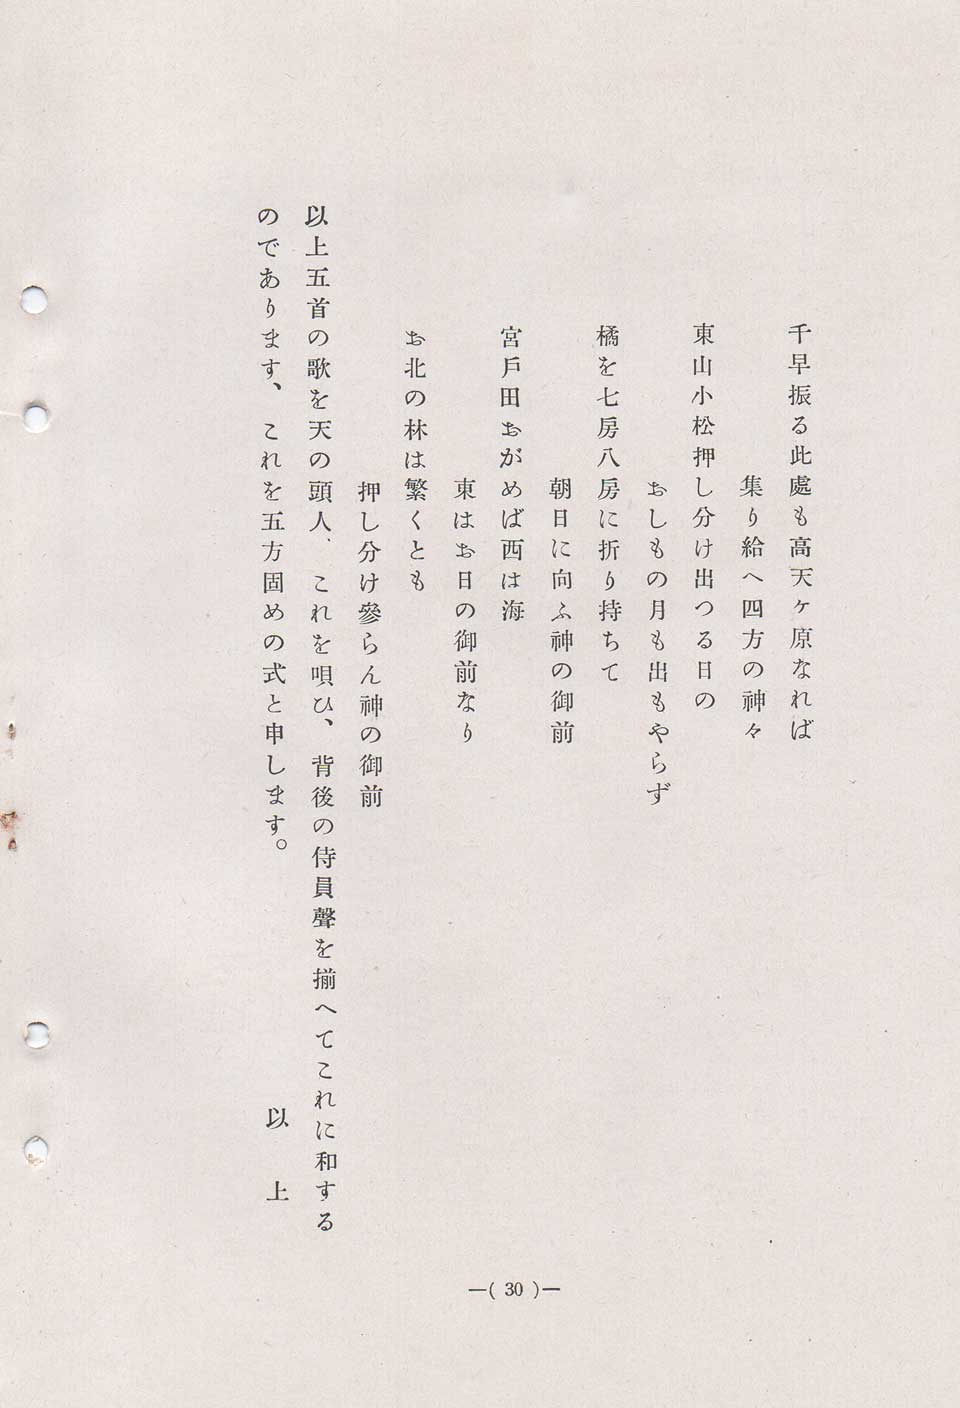 千早振る此處も高天ヶ原なれば
集り給へ四方の神々
東山小松押し分け出つる日の
おしもの月も出もやらず
橘を七房八房に折り持ちて
朝日に向ふ神の御前
宮戸田おがめば西は海
東はお日の御前なり
お北の林は繁くとも
押し分け參らん神の御前
以上五首の歌を天の頭人、これを唄ひ、背後の侍員聲を揃へてこれに和する
のであります、これを五方固めの式と申します。
以上
—( 30 )—